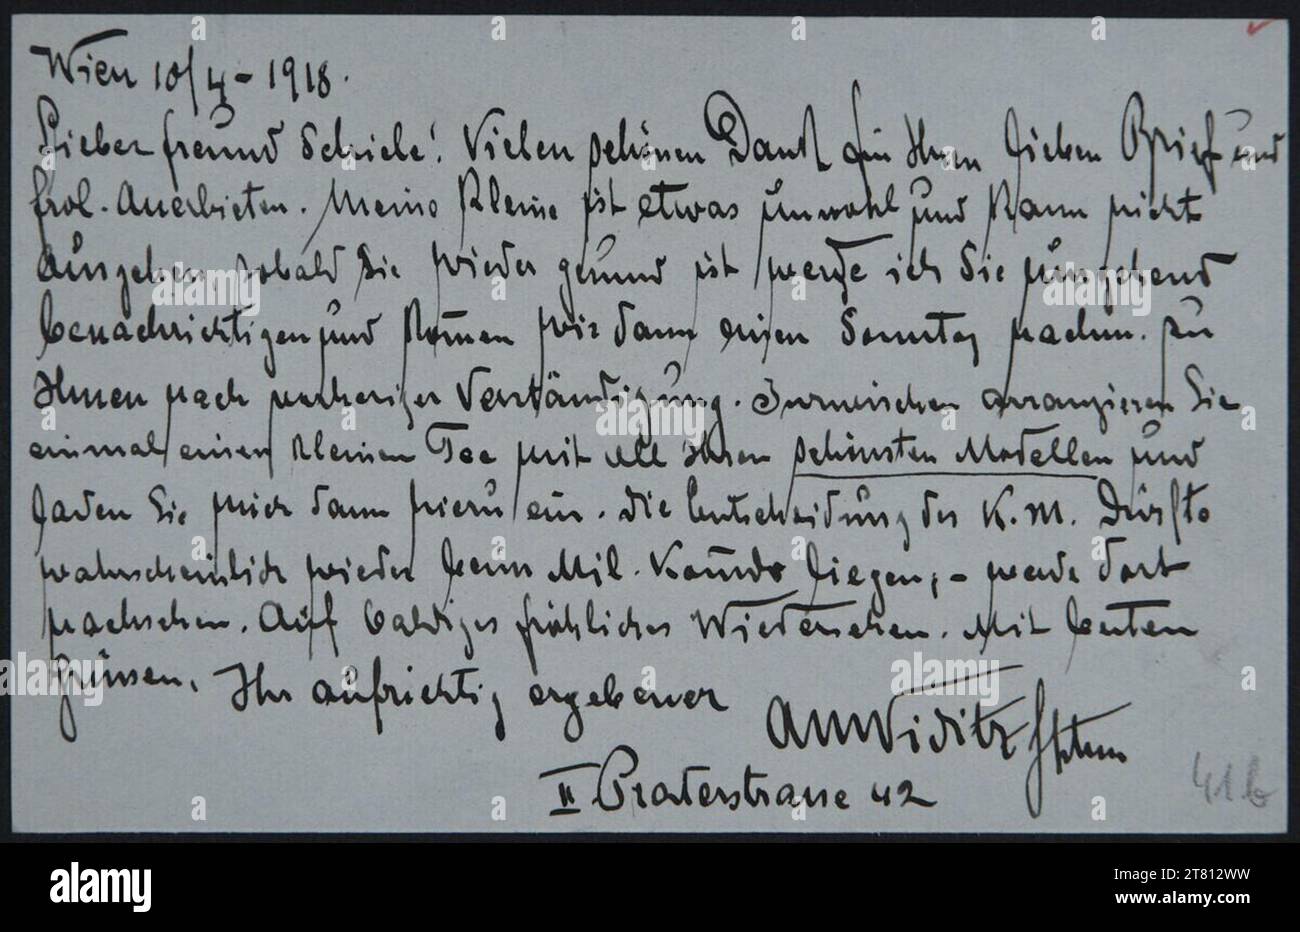 Wien 10/4 - 1918.
Lieber freund Schiele! Vielen schönen Dank für Ihren lieben Brief und
frdl. Anerbieten. Meine Kleine ist etwas unwohl und kann nicht
ausgehen, sobald sie wieder gesund ist werde ich Sie umgehend
benachrichtigen und kommen wir dann einen Sonntag nachm. zu
Ihnen nach vorheriger Verständigung. Inzwischen arrangieren Sie
einmal einen kleinen Tee mit all Ihren schönsten Modellen und
laden Sie mich dann hiezu ein. Die Entscheidung des K.M. dürfte
wahrscheinlich wieder beim Mil. Komdo liegen, - werde dort
nachsehen. Auf baldiges fröhliches Wiedersehen. Mit besten
Grüssen, Ihr aufrichtig ergebener
II Praterstrasse 42
41b
alamy
Image ID: 2T812WW
www.alamy.com